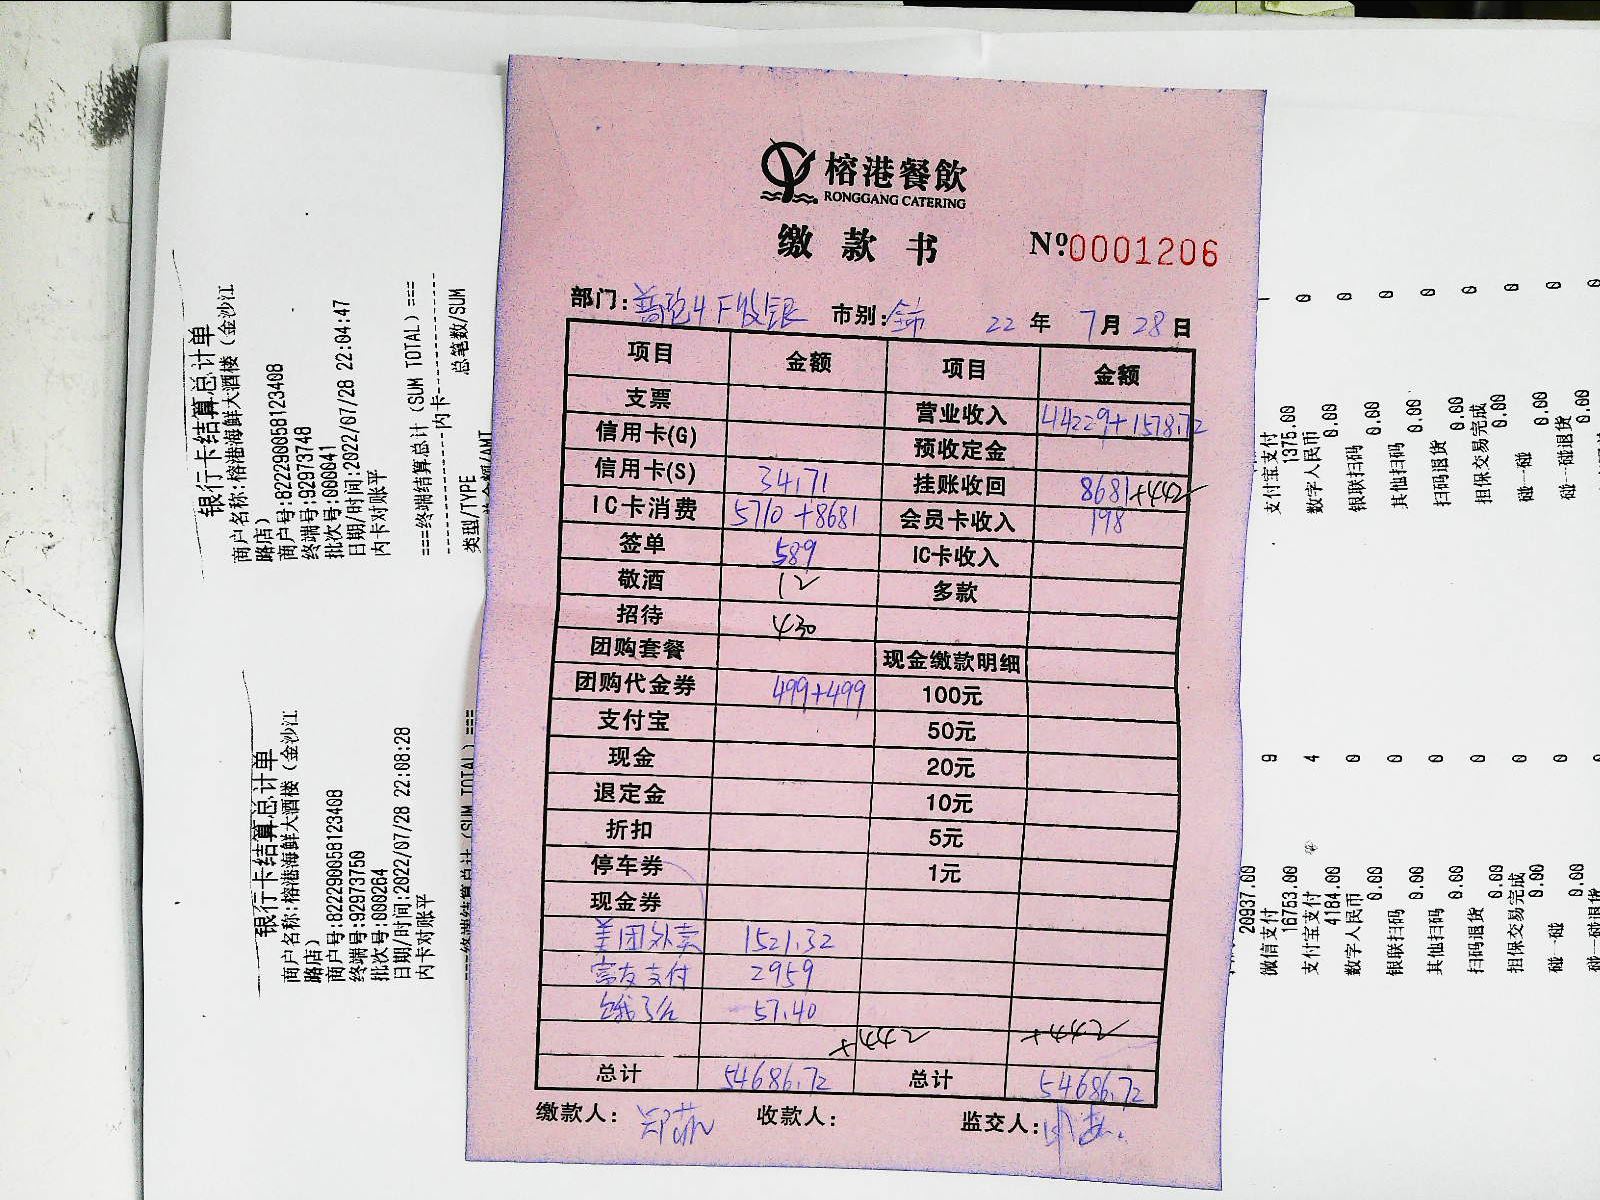 榕港餐飲
RONGGANG CATERING
缴款书 Nº0001206
部门:普陀4F收银 市别:全市 22年7月28日
项目 金额 项目 金额
支票 营业收入 44229+1578.72
信用卡(G) 预收定金
信用卡(S) 34171 挂账收回 8681+442
IC卡消费 5710+8681 会员卡收入 198
签单 589 IC卡收入
敬酒 12 多款
招待 430
团购套餐 现金缴款明细
团购代金券 499+499 100元
支付宝 50元
现金 20元
退定金 10元
折扣 5元
停车券 1元
现金券
美团外卖 1521.32
富友支付 2959
饿了么 57.40
+442 +442
总计 54686.72 总计 54686.72
缴款人: 收款人: 监交人:
银行卡结算总计单
商户名称:榕港海鲜大酒楼(金沙江
路店)
商户号:822290058123408
终端号:92973748
批次号:000041
日期/时间:2022/07/28 22:04:47
内卡对账平
===终端结算总计(SUM TOTAL)===
内卡
类型/TYPE 总笔数/SUM
支付宝支付 1
1375.00
数字人民币 0
0.00
银联扫码 0
0.00
其他扫码 0
0.00
扫码退货 0
0.00
担保交易完成 0
0.00
碰一碰 0
0.00
碰一碰退货 0
0.00
银行卡结算总计单
商户名称:榕港海鲜大酒楼(金沙江
路店)
商户号:822290058123408
终端号:92973750
批次号:000284
日期/时间:2022/07/28 22:08:28
内卡对账平
20937.00
微信支付 9
16753.00
支付宝支付 4
4184.00
数字人民币 0
0.00
银联扫码 0
0.00
其他扫码 0
0.00
扫码退货 0
0.00
担保交易完成 0
0.00
碰一碰 0
0.00
碰一碰退货